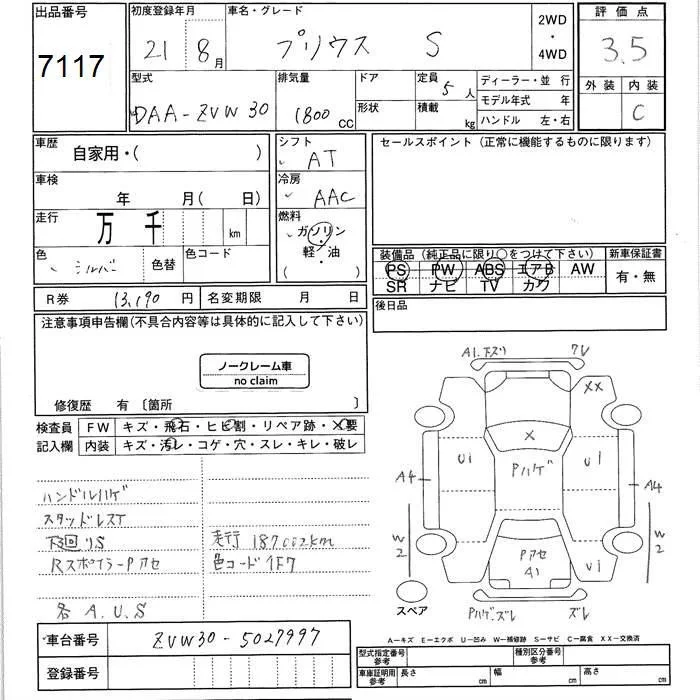 出品番号 初度登録年月 車名・グレード 2WD・4WD 評価点
7117 21 8月 プリウス S 3.5
型式 排気量 ドア 定員 5人 ディーラー・並行 外装 内装
DAA-ZVW30 1800CC 形状 積載 kg モデル年式 年 C
ハンドル 左・右
車歴 自家用・( ) シフト AT セールスポイント(正常に機能するものに限ります)
車検 年 月(日) 冷房 AAC
走行 万 千 km 燃料 ガソリン・軽・油 ( )
色 シルバー 色替 色コード
装備品(純正品に限り○をつけて下さい) 新車保証書
PS PW ABS エアB AW 有・無
SR ナビ TV カワ
R券 13,190円 名変期限 月 日 後日品
注意事項申告欄(不具合内容等は具体的に記入して下さい)
ノークレーム車
no claim
修復歴 有 〔箇所 〕
検査員記入欄 FW キズ・飛石・ヒビ割・リペア跡・X要
内装 キズ・汚レ・コゲ・穴・スレ・キレ・破レ
ハンドルハゲ
スタッドレスT
下回リS 走行 187002km
RスポイラーPアセ 色コード1F7
各A.U.S
A1.下ズリ フレ
XX
X
U1 Pハゲ U1
A4 A4
W2 W2
Pアセ
A1 U1
スペア Pハゲ.ズレ ズレ
A—キズ E—エクボ U—凹み W—補修跡 S—サビ C—腐食 XX—交換済
車台番号 ZVW30-5027997
登録番号
型式指定番号参考 種別区分番号参考
車庫証明用参考 長さ cm 幅 cm 高さ cm